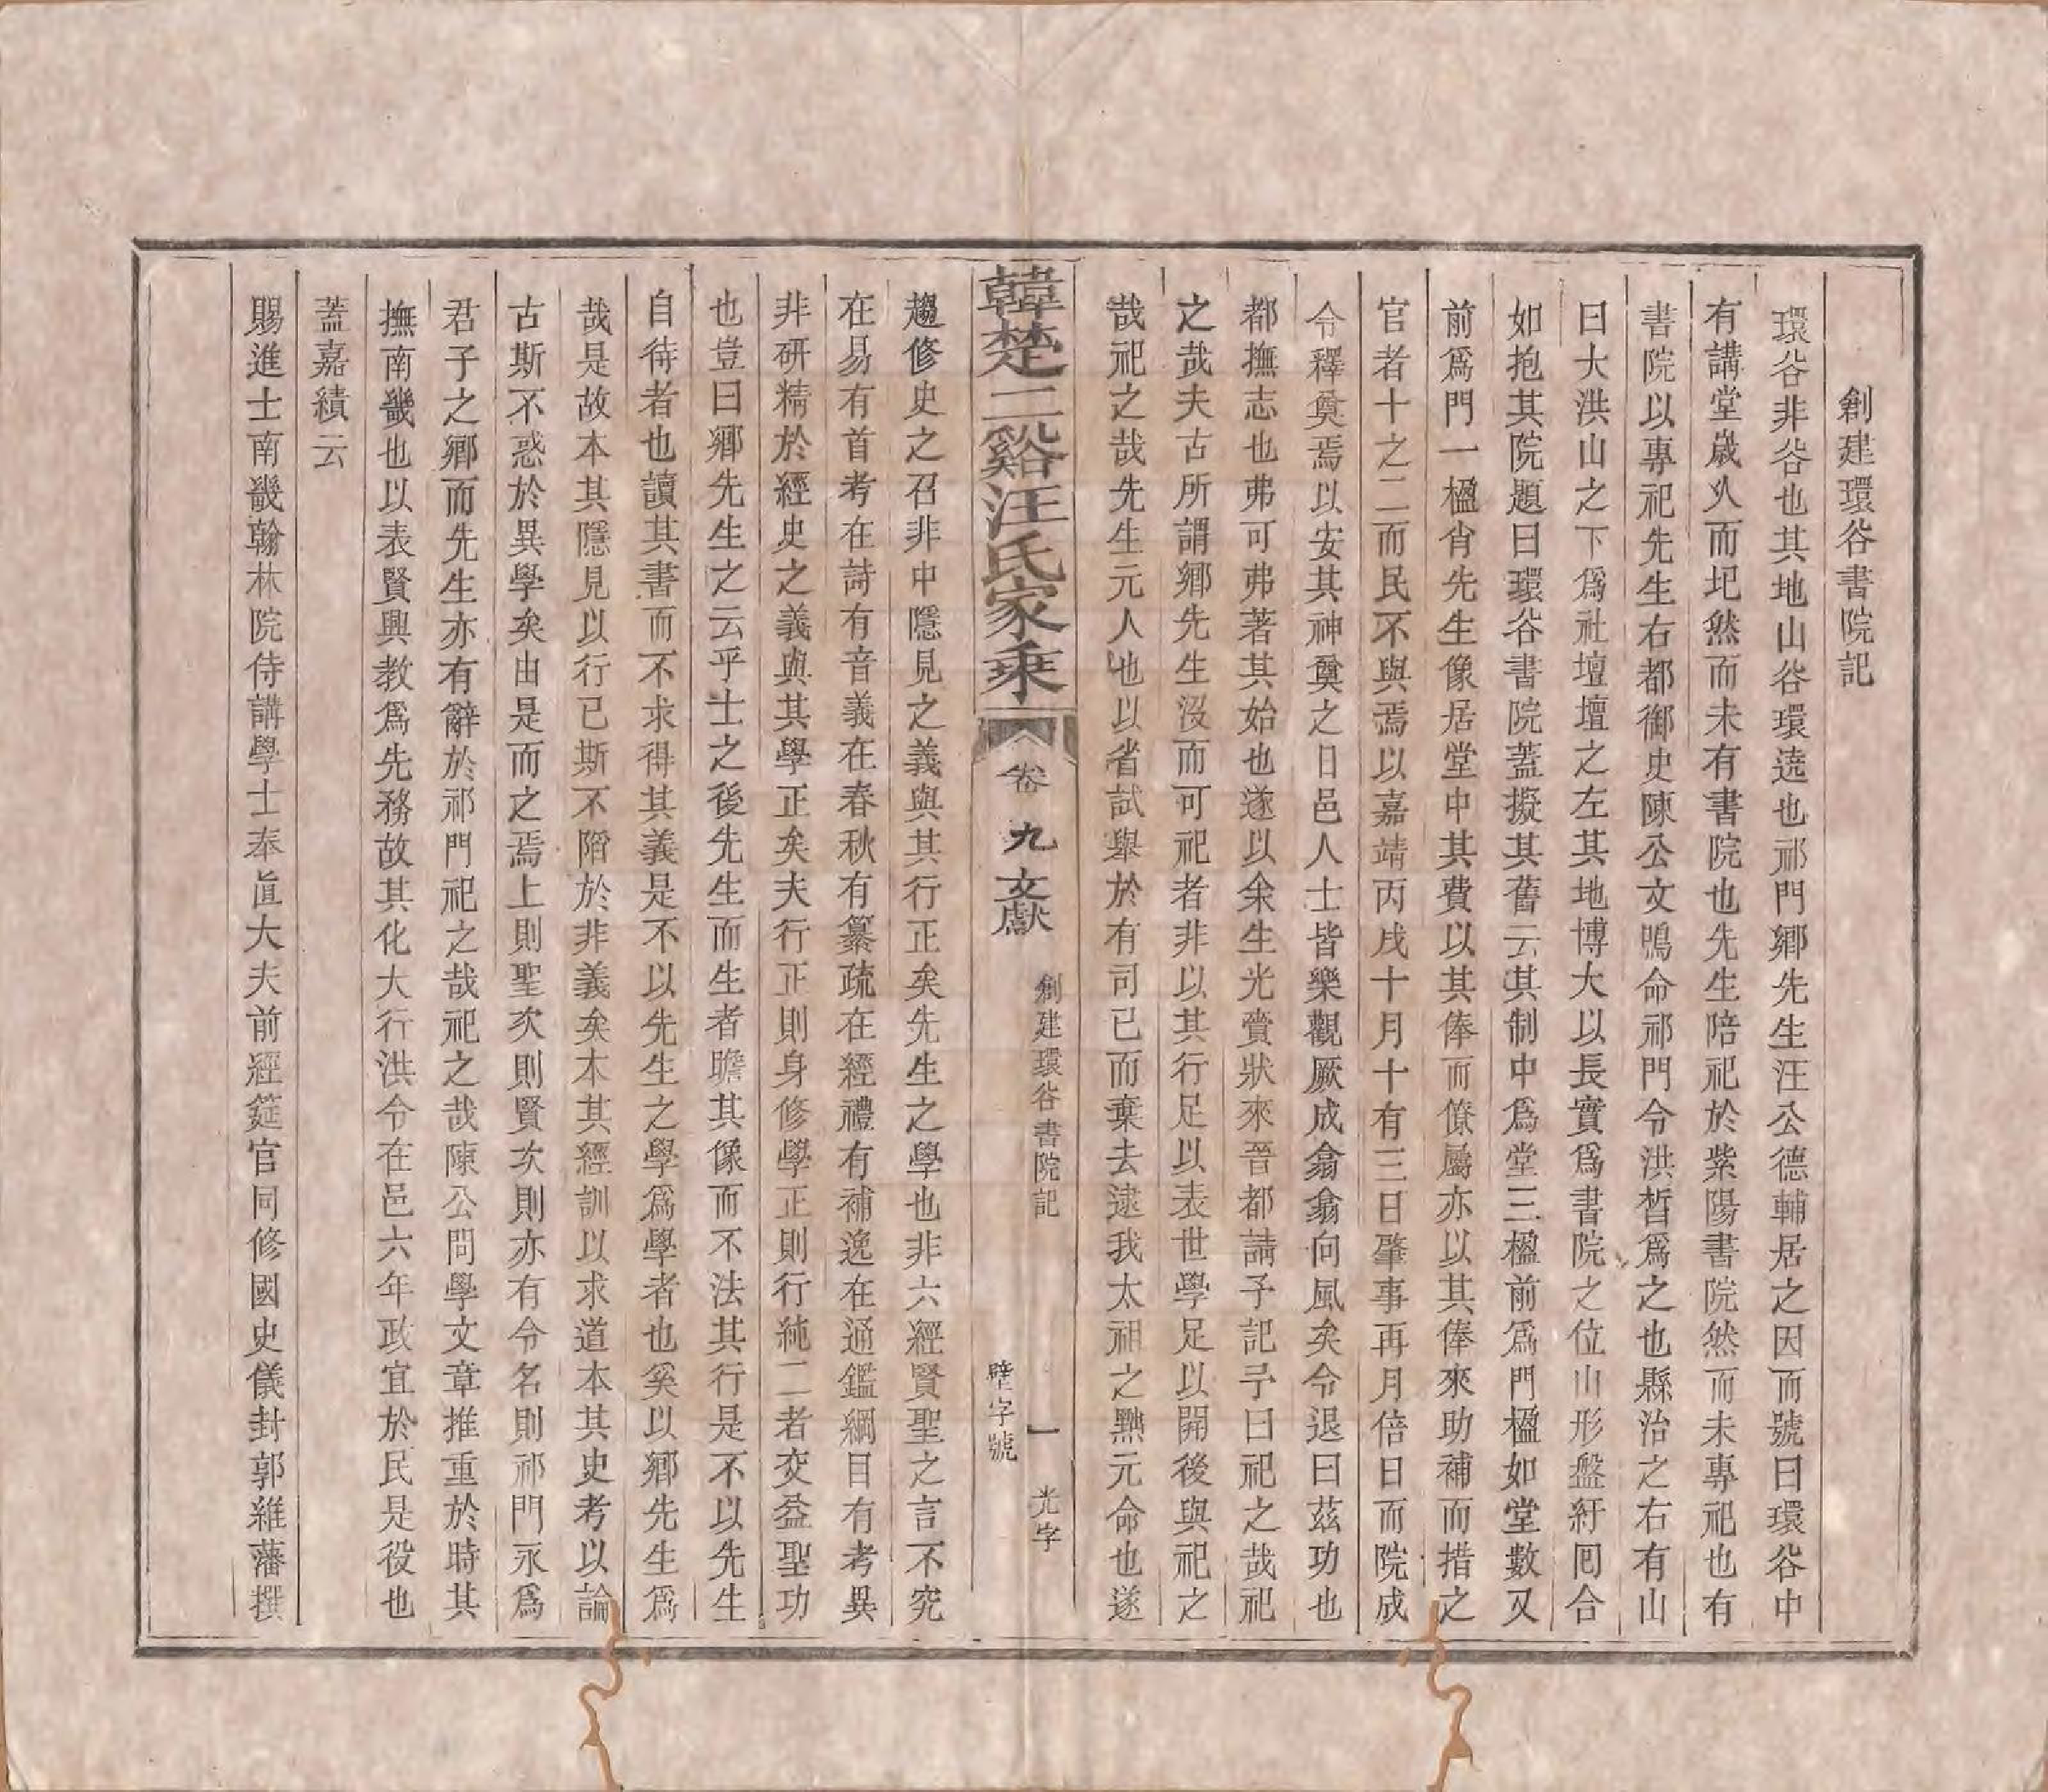 創建環谷書院記
環谷非谷也其地山谷環遶也祁門鄉先生汪公德輔居之因而號曰環谷中
有講堂歲久而圮然而未有書院也先生陪祀於紫陽書院然而未專祀也有
書院以專祀先生右都御史陳公文鳴命祁門令洪晳爲之也縣治之右有山
曰大洪山之下爲社壇壇之左其地博大以長實爲書院之位山形盤紆囘合
如抱其院題曰環谷書院蓋擬其舊云其制中爲堂三楹前爲門楹如堂數又
前爲門一楹肖先生像居堂中其費以其俸而僚屬亦以其俸來助補而措之
官者十之二而民不與焉以嘉靖丙戌十月十有三日肇事再月倍日而院成
令釋奠焉以安其神奠之日邑人士皆樂觀厥成翕翕向風矣令退曰茲功也
都撫志也弗可弗著其始也遂以余生光賫狀來晉都請予記予曰祀之哉祀
之哉夫古所謂鄉先生沒而可祀者非以其行足以表世學足以開後與祀之
哉祀之哉先生元人也以省試舉於有司已而棄去逮我太祖之黜元命也遂
韓楚二谿汪氏家乘
卷九文獻
創建環谷書院記
一
光字
壁字號
趨修史之召非中隱見之義與其行正矣先生之學也非六經賢聖之言不究
在易有首考在詩有音義在春秋有纂疏在經禮有補逸在通鑑綱目有考異
非研精於經史之義與其學正矣夫行正則身修學正則行純二者交益聖功
也豈曰鄉先生之云乎士之後先生而生者瞻其像而不法其行是不以先生
自待者也讀其書而不求得其義是不以先生之學爲學者也奚以鄉先生爲
哉是故本其隱見以行已斯不陷於非義矣本其經訓以求道本其史考以論
古斯不惑於異學矣由是而之焉上則聖次則賢次則亦有令名則祁門永爲
君子之鄉而先生亦有辭於祁門祀之哉祀之哉陳公問學文章推重於時其
撫南畿也以表賢興教爲先務故其化大行洪令在邑六年政宜於民是役也
蓋嘉績云
賜進士南畿翰林院侍講學士奉直大夫前經筵官同修國史儀封郭維藩撰